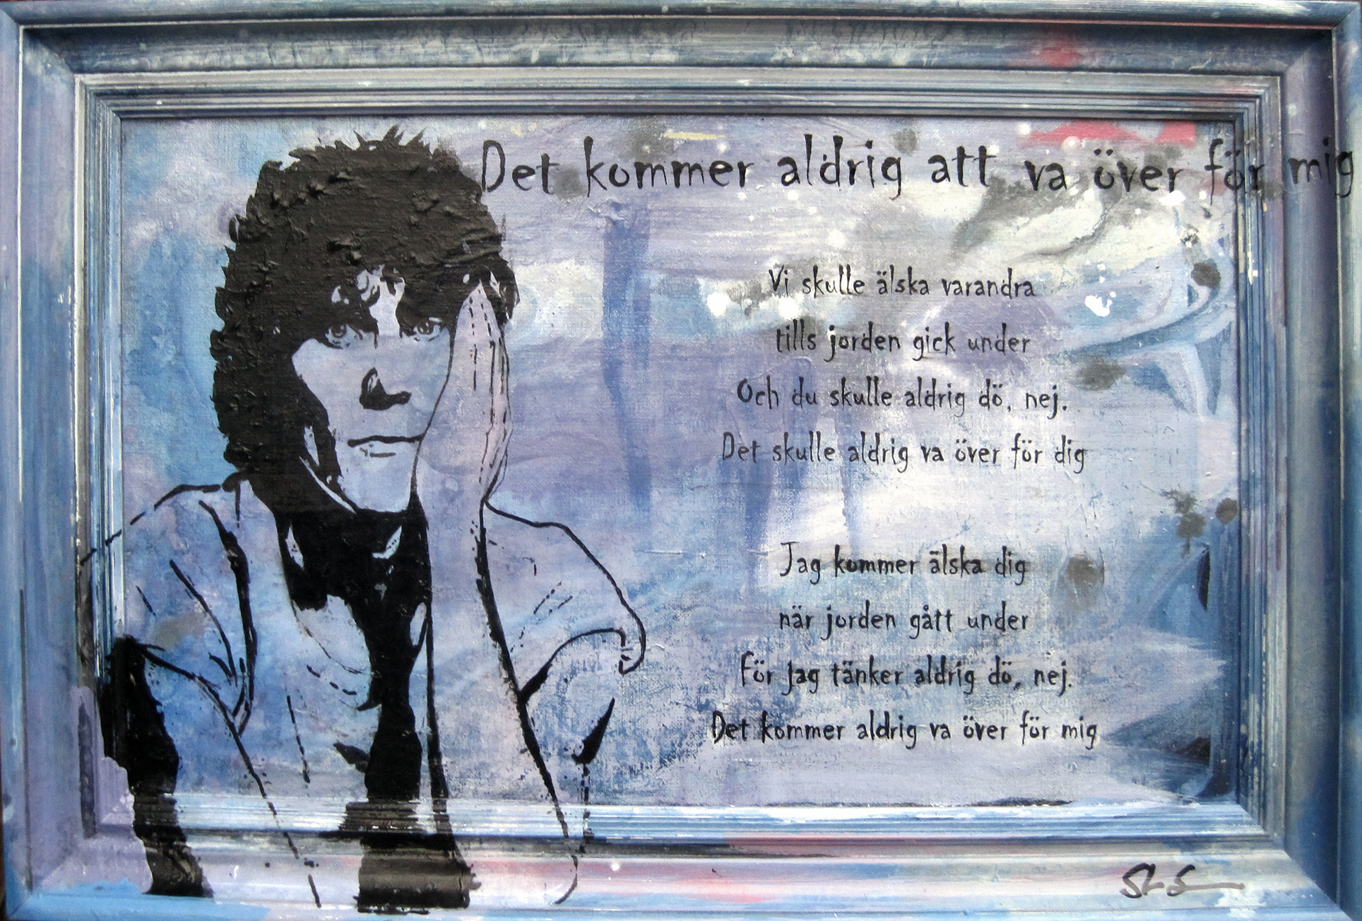 Det kommer aldrig att va över för mig
Vi skulle älska varandra
tills jorden gick under
Och du skulle aldrig dö, nej.
Det skulle aldrig va över för dig
Jag kommer älska dig
när jorden gått under
För jag tänker aldrig dö, nej.
Det kommer aldrig va över för mig